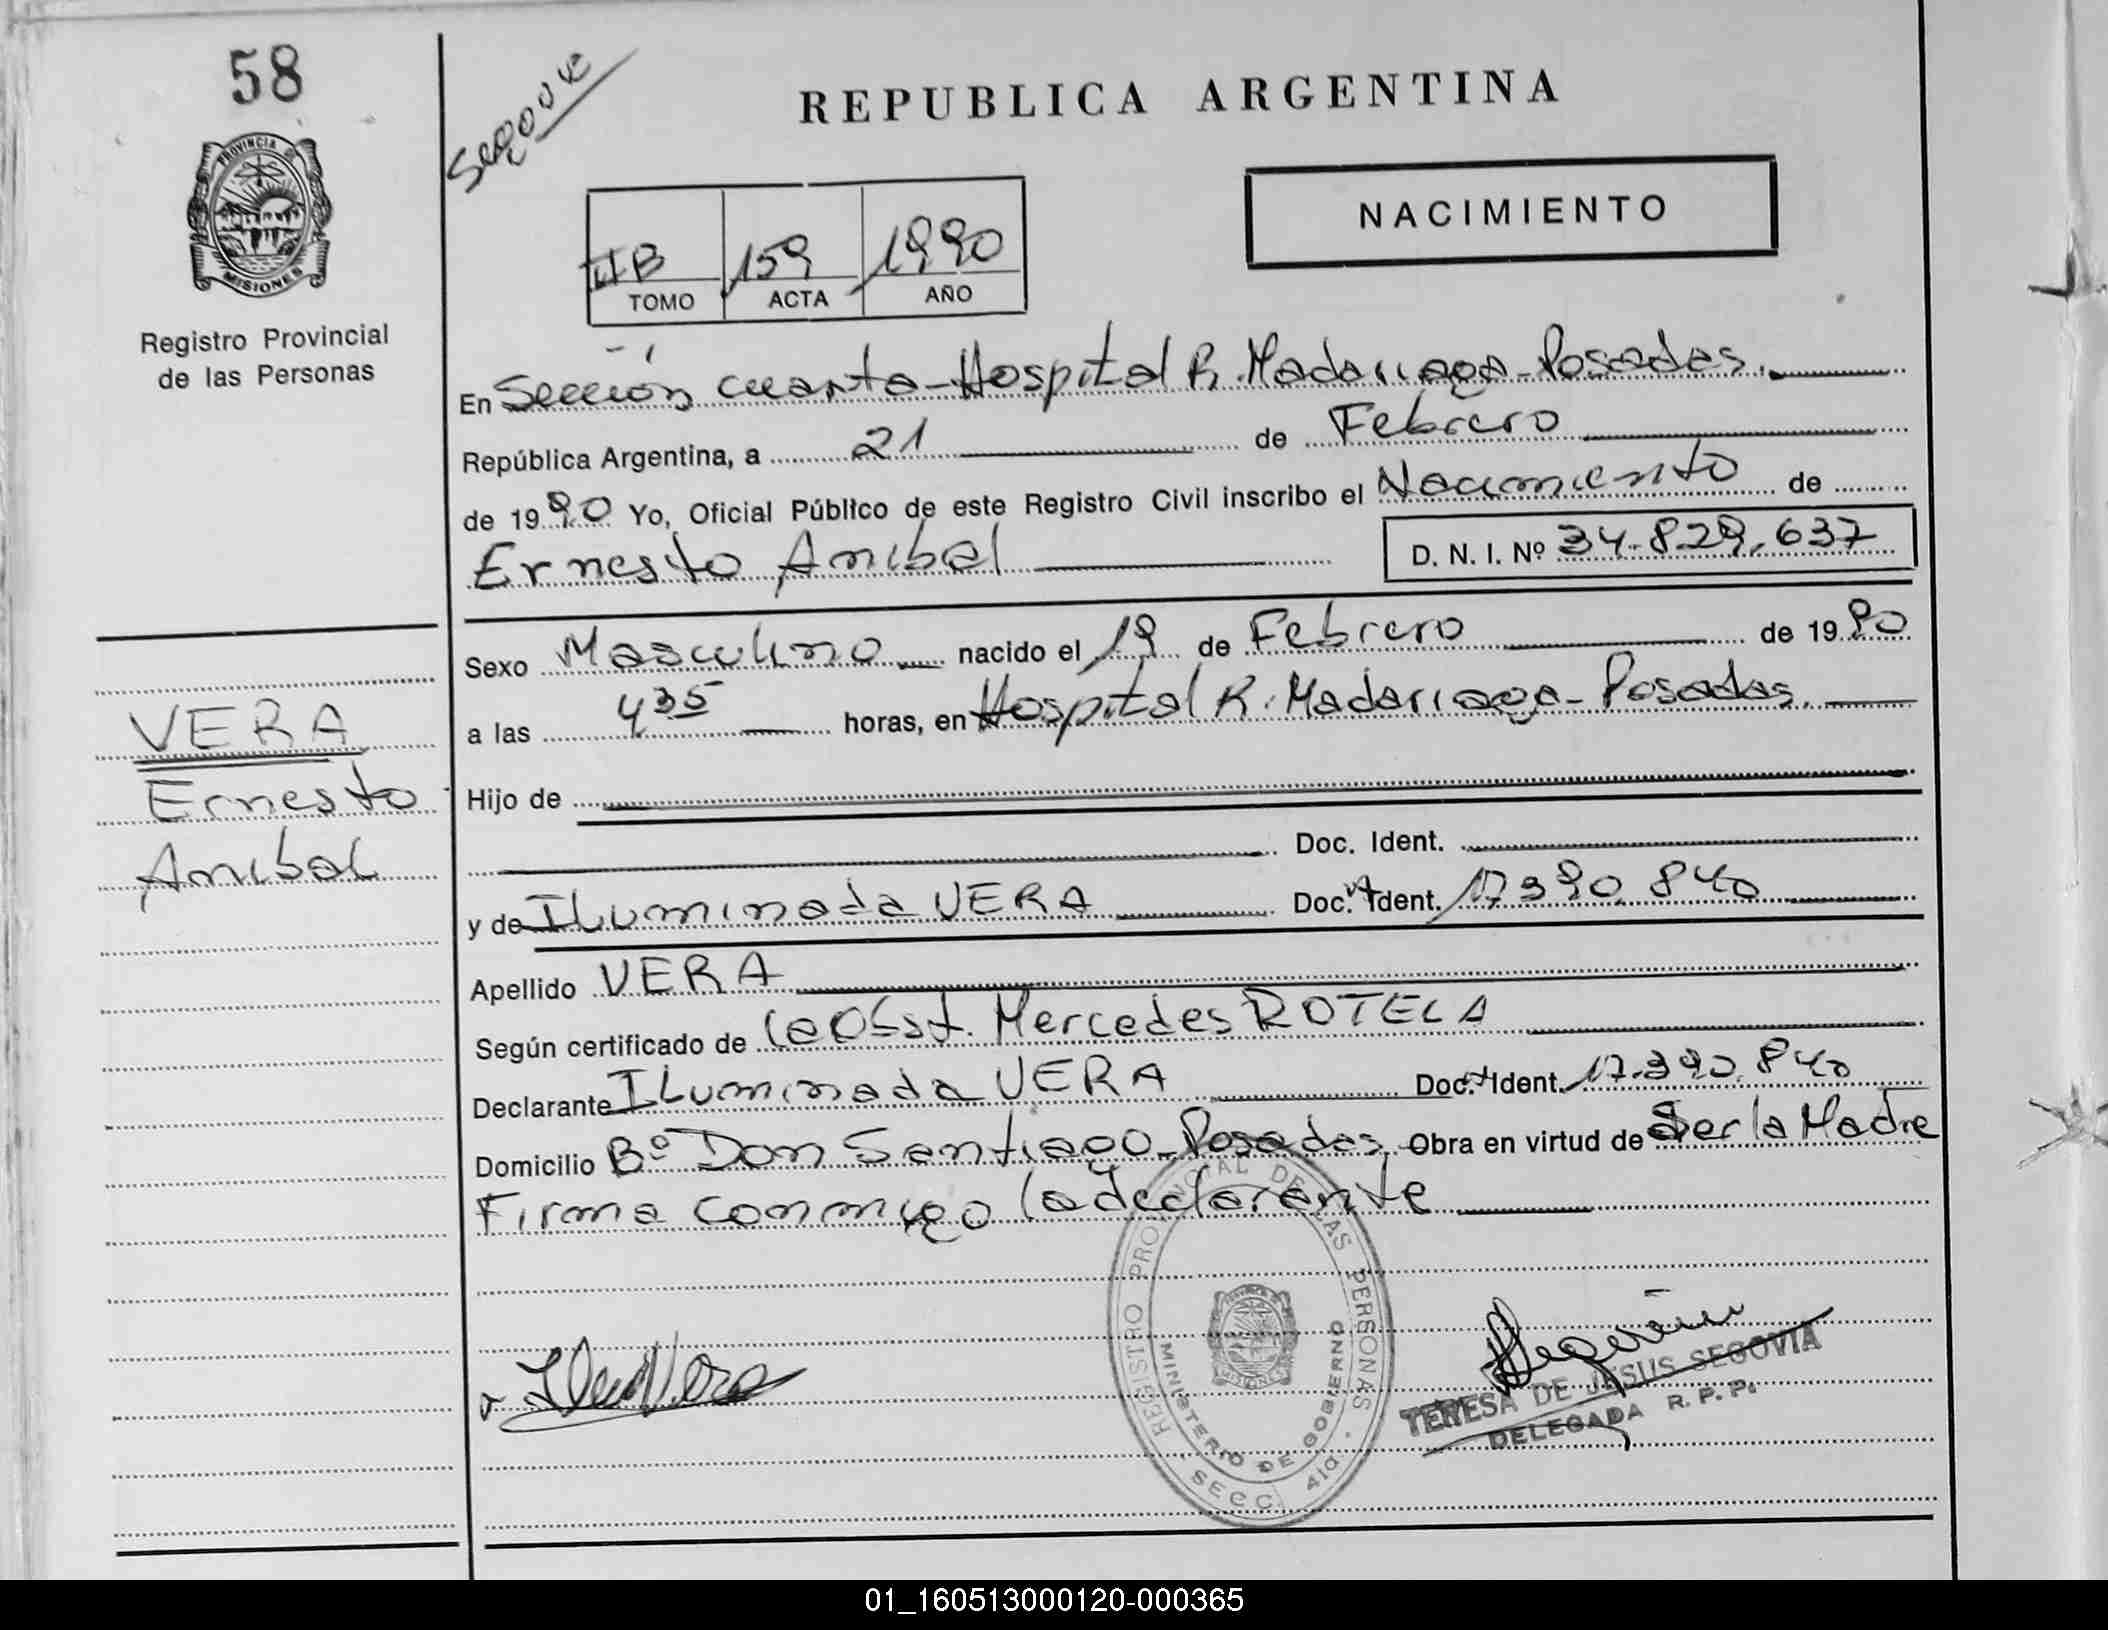 58
REPUBLICA ARGENTINA
PROVINCIA DE
MISIONES
Registro Provincial
de las Personas
NACIMIENTO
IIB 159 1990
TOMO ACTA AÑO
En Sección cuarta-Hospital R. Madariaga-Posadas.
República Argentina, a 21 de Febrero
de 1990 Yo, Oficial Público de este Registro Civil inscribo el Nacimiento de
Ernesto Anibal D. N. I. Nº 34.829.637
Sexo Masculino nacido el 19 de Febrero de 1990
a las 4 35 horas, en Hospital R. Madariaga-Posadas.
VERA
Ernesto
Anibal
Hijo de
Doc. Ident.
y de ILuminada VERA Doc. Ident. 17.390.840
Apellido VERA
Según certificado de la Obst. Mercedes ROTELA
Declarante ILuminada VERA Doc. Ident. 17.390.840
Domicilio Bº Don Santiago-Posadas. Obra en virtud de Ser la Madre
Firma conmigo la declarante
REGISTRO PROVINCIAL DE LAS PERSONAS
MINISTERIO DE GOBIERNO
SECC. 4ta.
TERESA DE JESUS SEGOVIA
DELEGADA R. P. P.
01_160513000120-000365